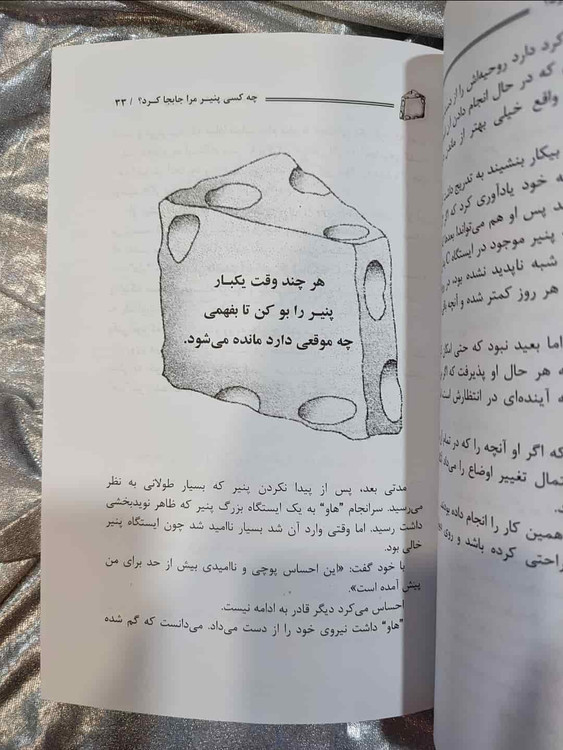 چه کسی پنیر مرا جابجا کرد؟ / ۳۳
هر چند وقت یکبار
پنیر را بو کن تا بفهمی
چه موقعی دارد مانده می‌شود.
مدتی بعد، پس از پیدا نکردن پنیر که بسیار طولانی به نظر
می‌رسید. سرانجام "هاو" به یک ایستگاه بزرگ پنیر که ظاهر نویدبخشی
داشت رسید. اما وقتی وارد آن شد بسیار ناامید شد چون ایستگاه پنیر
خالی بود.
با خود گفت: «این احساس پوچی و ناامیدی بیش از حد برای من
پیش آمده است».
احساس می‌کرد دیگر قادر به ادامه نیست.
"هاو" داشت نیروی خود را از دست می‌داد. می‌دانست که گم شده
کرد دارد روحیه‌اش را از
که در حال انجام دادن آن
واقع خیلی بهتر از
بیکار بنشیند به تدریج
خود یادآوری کرد که
پس او هم می‌تواند!
پنیر موجود در ایستگاه
شبه ناپدید نشده بود.
هر روز کمتر شده و آنچه
اما بعید نبود که حتی
هر حال او پذیرفت که
آینده‌ای در انتظارش
که اگر او آنچه را که در تمام
تغییر اوضاع را می‌داد
همین کار را انجام داده بودند
راحتی کرده باشد و روی